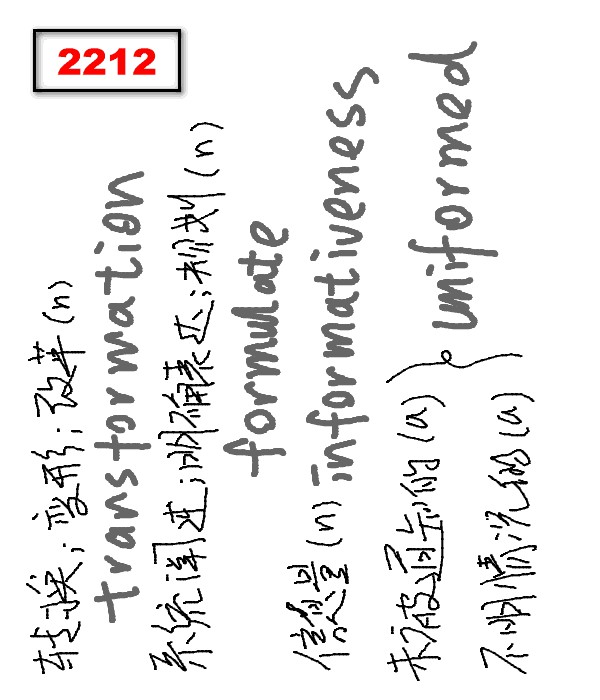 2212
转换；变形；改革(n)
transformation
系统阐述；明确表达；规划(n)
formulate
信息量(n) informativeness
未被通知的(a)
不明情况的(a)
uniformed